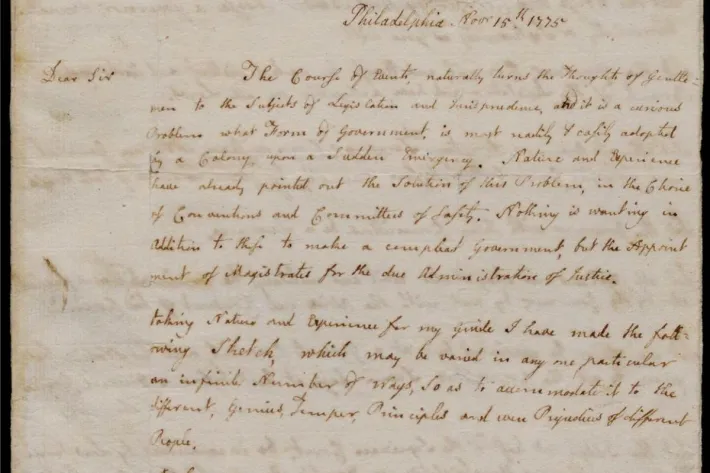 Philadelphia Novr 15th 1775
Dear Sir
The Course of Events, naturally turns the Thoughts of Gentle-
men to the Subjects of Legislation and Jurisprudence, and it is a curious
Problem what Form of Government, is most readily & easily adopted
by a Colony, upon a Sudden Emergency. Nature and Experience
have already pointed out the Solution of this Problem, in the Choice
of Conventions and Committees of Safety. Nothing is wanting in
Addition to these to make a compleat Government, but the Appoint
ment of Magistrates for the due Administration of Justice.
Taking Nature and Experience for my Guide I have made the foll-
owing Sketch, which may be varied in any one particular
an infinite Number of ways, So as to accommodate it to the
different, Genius, Temper, Principles and even Prejudices of different
People.